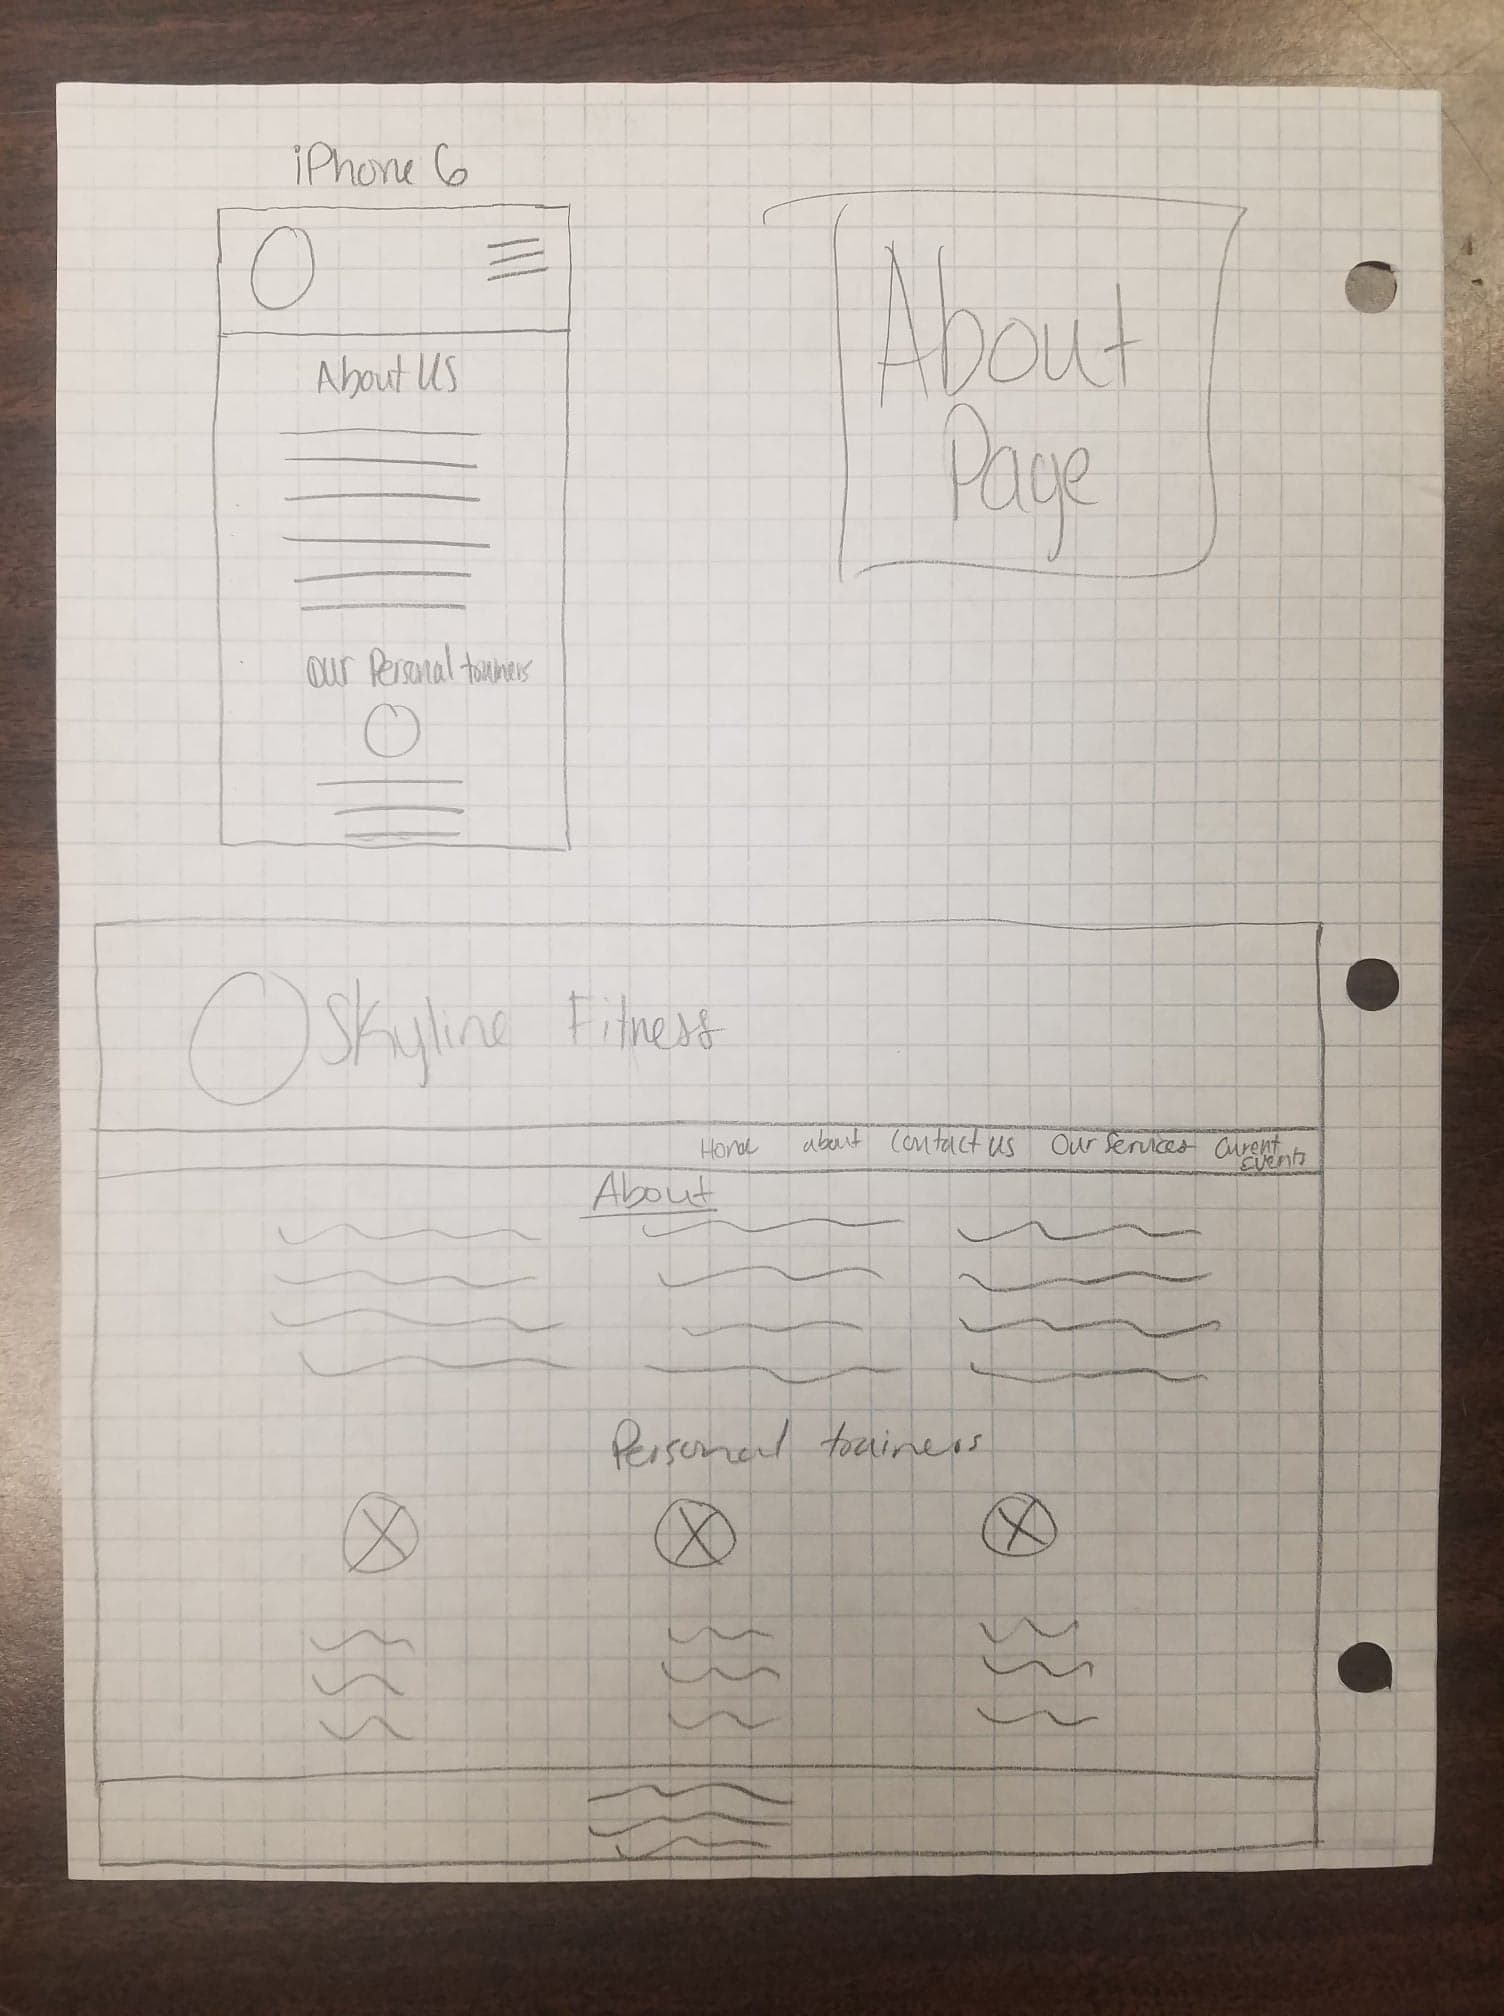 iPhone 6
About Us
Our Personal trainers
About
Page
Skyline Fitness
Home about Contact us Our Services Curent
Events
About
Personal trainers